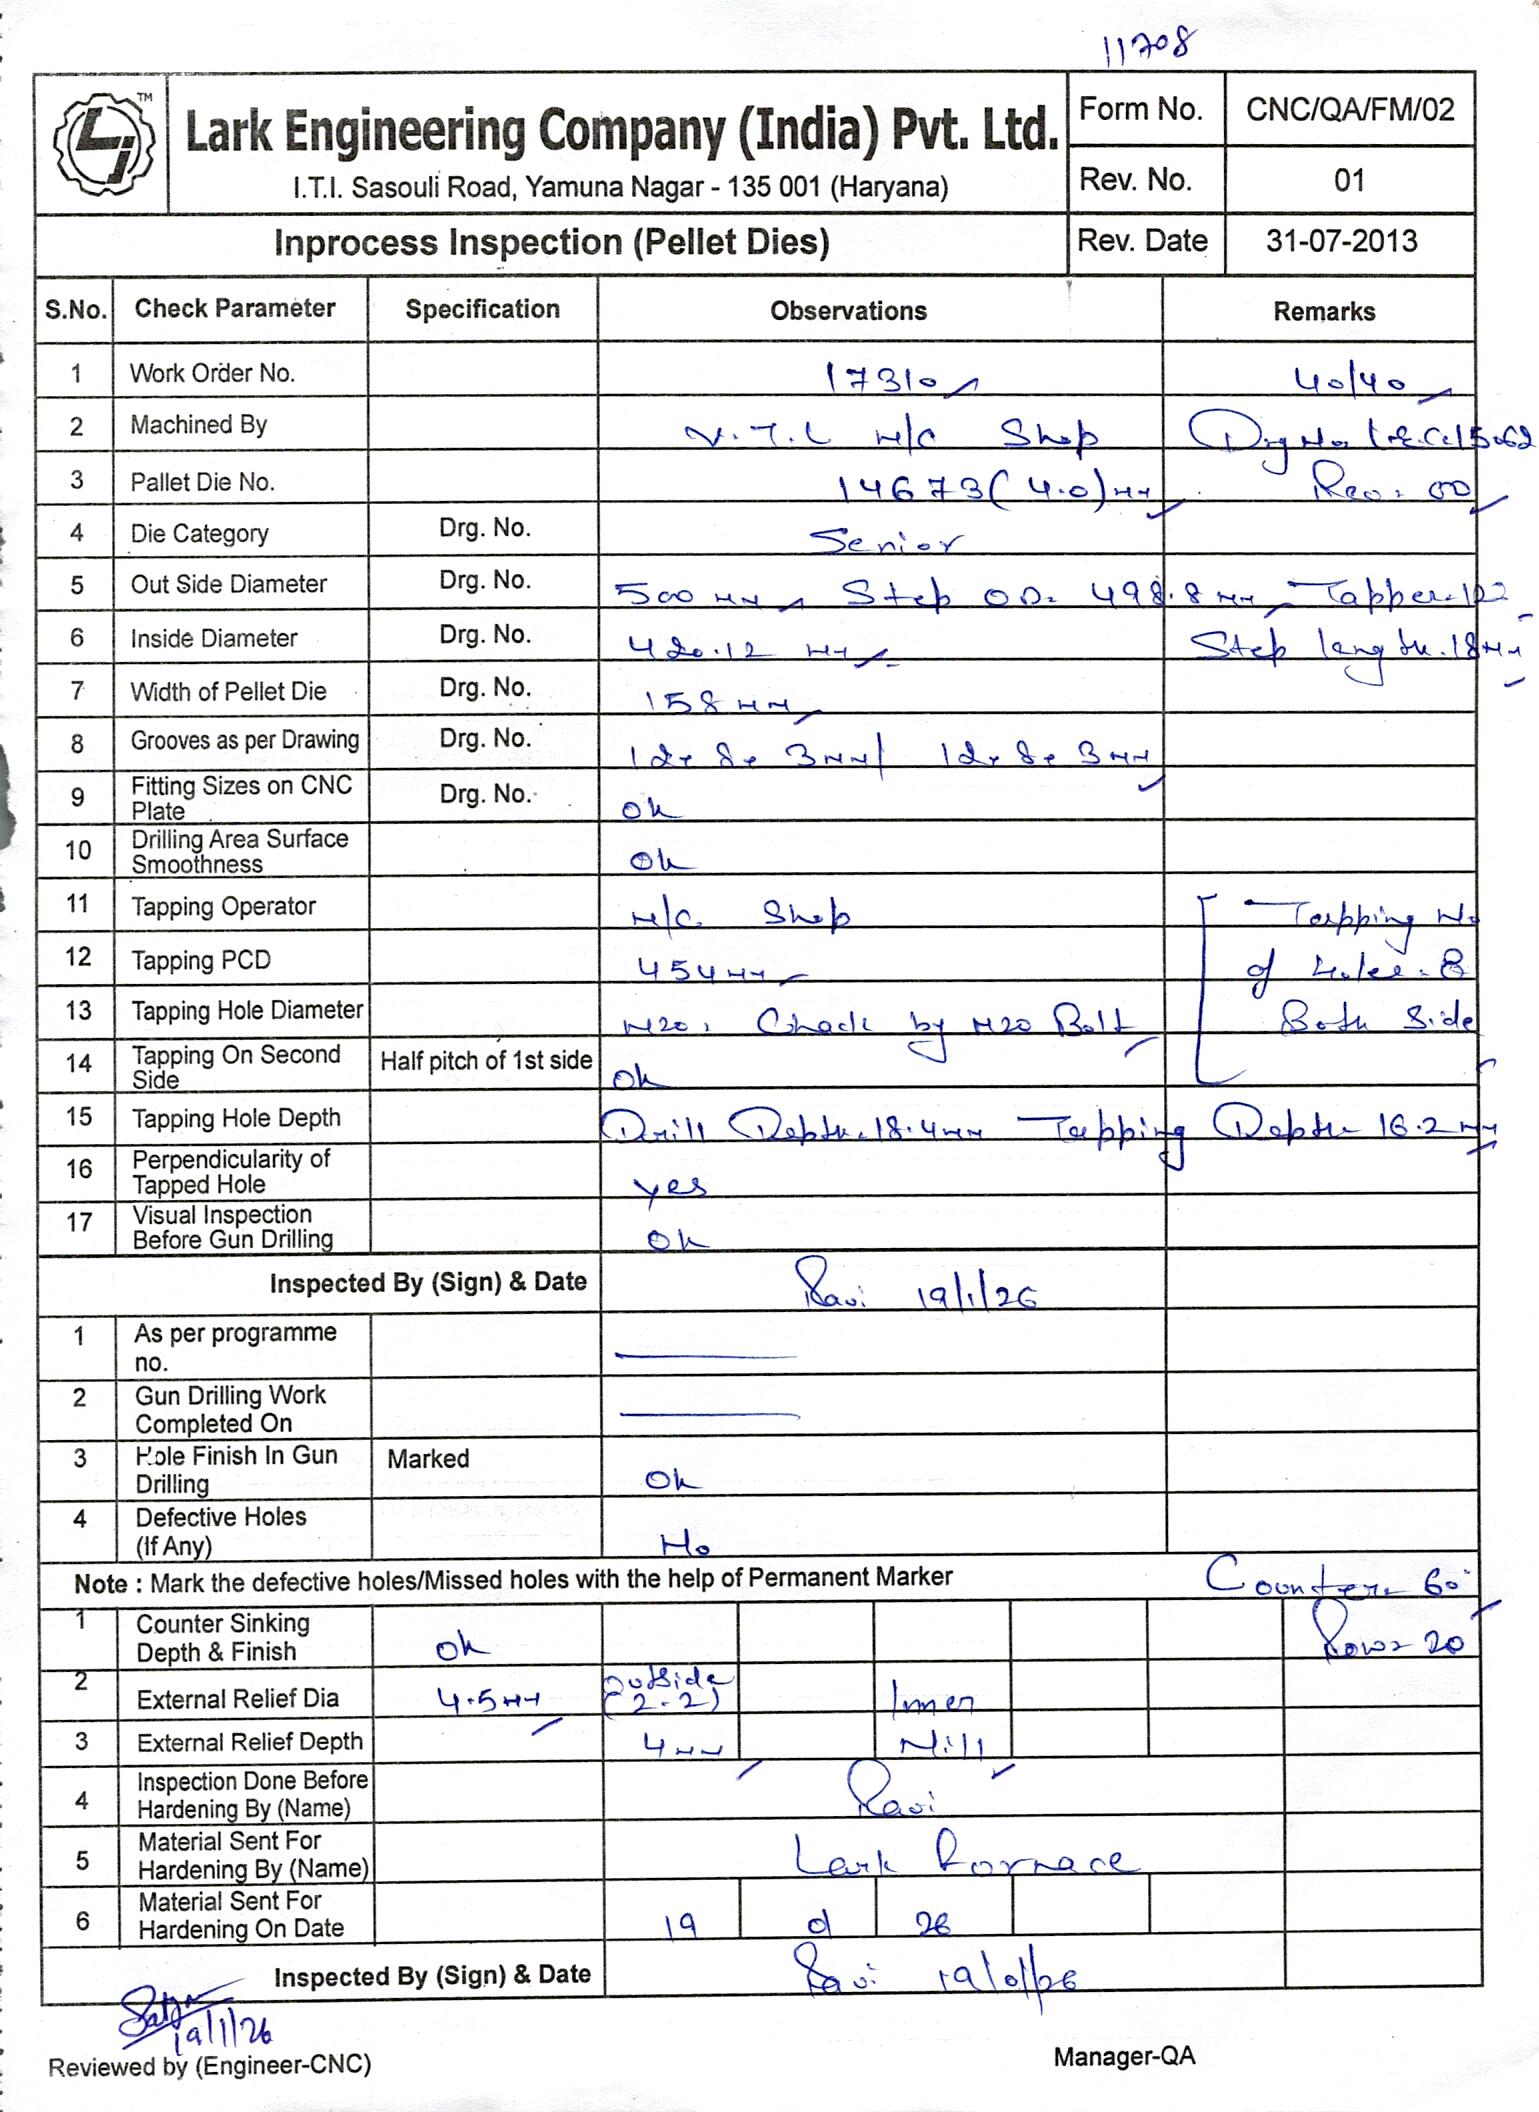 11708
TM
Lark Engineering Company (India) Pvt. Ltd.
I.T.I. Sasouli Road, Yamuna Nagar - 135 001 (Haryana)
Form No. CNC/QA/FM/02
Rev. No. 01
Inprocess Inspection (Pellet Dies) Rev. Date 31-07-2013
S.No. Check Parameter Specification Observations Remarks
1 Work Order No. 17310 40/40
2 Machined By V.T.L M/C Shop Drg No. 15.62
3 Pallet Die No. 14673 (4.0) mm Rev. 00
4 Die Category Drg. No. Senior
5 Out Side Diameter Drg. No. 500 mm Step OD. 498.8 mm Tapper.
6 Inside Diameter Drg. No. 420.12 mm Step length. 18mm
7 Width of Pellet Die Drg. No. 158 mm
8 Grooves as per Drawing Drg. No. 12x8x3mm/ 12x8x3mm
9 Fitting Sizes on CNC Plate Drg. No. Ok
10 Drilling Area Surface Smoothness Ok
11 Tapping Operator M/C Shop Tapping No
12 Tapping PCD 454mm of Holes. 8
13 Tapping Hole Diameter M20, Chack by M20 Bolt Both Side
14 Tapping On Second Side Half pitch of 1st side Ok
15 Tapping Hole Depth Drill Depth. 18.4mm Tapping Depth 16.2mm
16 Perpendicularity of Tapped Hole yes
17 Visual Inspection Before Gun Drilling Ok
Inspected By (Sign) & Date Ravi 19/1/26
1 As per programme no.
2 Gun Drilling Work Completed On
3 Hole Finish In Gun Drilling Marked Ok
4 Defective Holes (If Any) No
Note : Mark the defective holes/Missed holes with the help of Permanent Marker Counter. 60°
1 Counter Sinking Depth & Finish Ok Row= 20
2 External Relief Dia 4.5mm Outside (2-2) Inner
3 External Relief Depth 4mm Nill
4 Inspection Done Before Hardening By (Name) Ravi
5 Material Sent For Hardening By (Name) Lark Fornace
6 Material Sent For Hardening On Date 19 01 26
Inspected By (Sign) & Date Ravi 19/01/26
19/1/26
Reviewed by (Engineer-CNC) Manager-QA